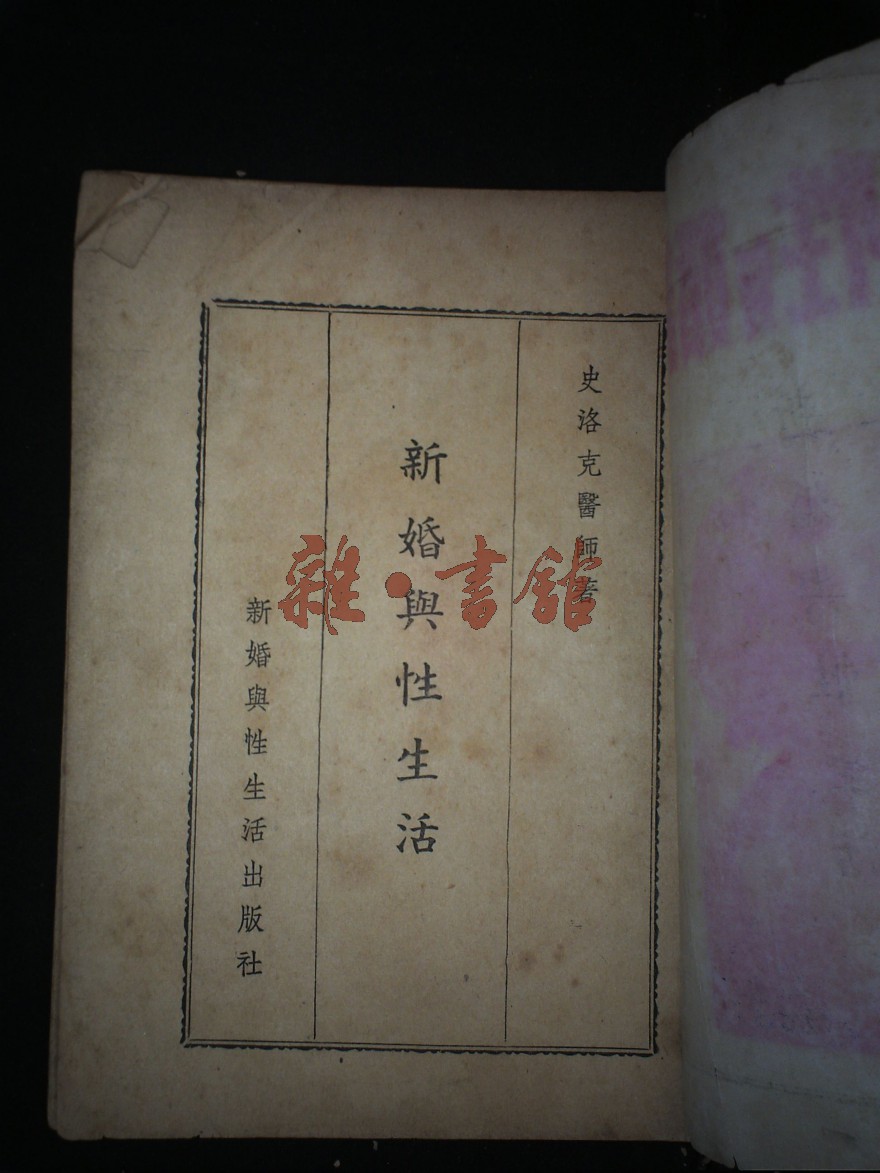 史洛克醫師著
新婚與性生活
新婚與性生活出版社
雜·書館